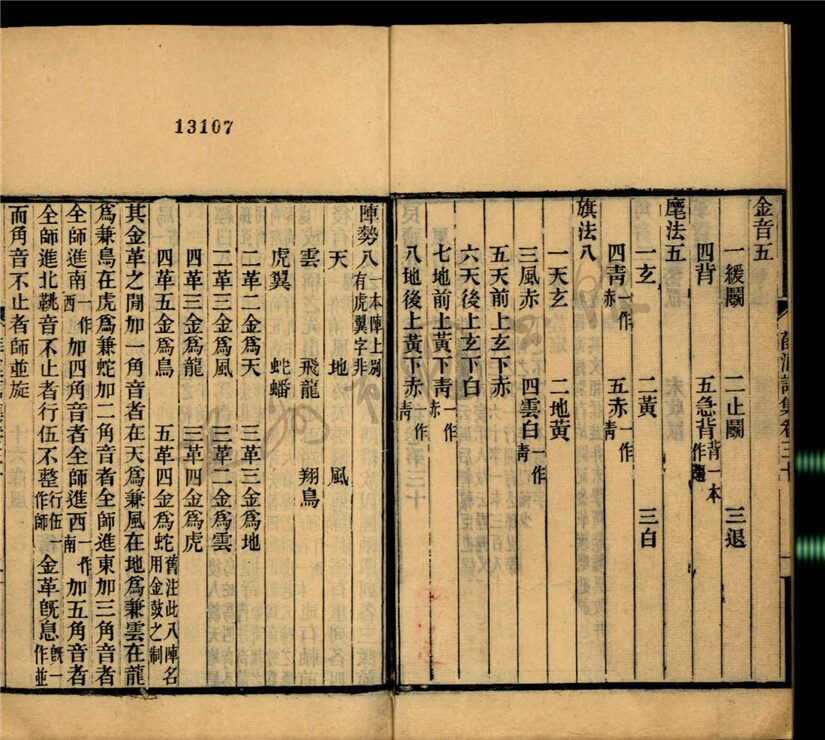 13107
金音五
一緩鬭 二止鬭 三退
四背 五急背背一本作趨
麾法五
一玄 二黃 三白
四靑一作赤 五赤一作靑
旗法八
一天玄 二地黃
三風赤 四雲白一作靑
五天前上玄下赤
六天後上玄下白
七地前上黃下靑一作赤
八地後上黃下赤一作靑
陣勢八一本陣上別有虎翼字非
天 地 風
雲 飛龍 翔鳥
虎翼 蛇蟠
二革二金爲天 三革三金爲地
二革三金爲風 三革二金爲雲
四革三金爲龍 三革四金爲虎
四革五金爲鳥 五革四金爲蛇舊注此八陣名用金鼓之制
其金革之閒加一角音者在天爲兼風在地爲兼雲在龍
爲兼鳥在虎爲兼蛇加二角音者全師進東加三角音者
全師進南一作西加四角音者全師進西一作南加五角音者
全師進北鞉音不止者行伍不整行伍一作師金革旣息旣一作並
而角音不止者師並旋